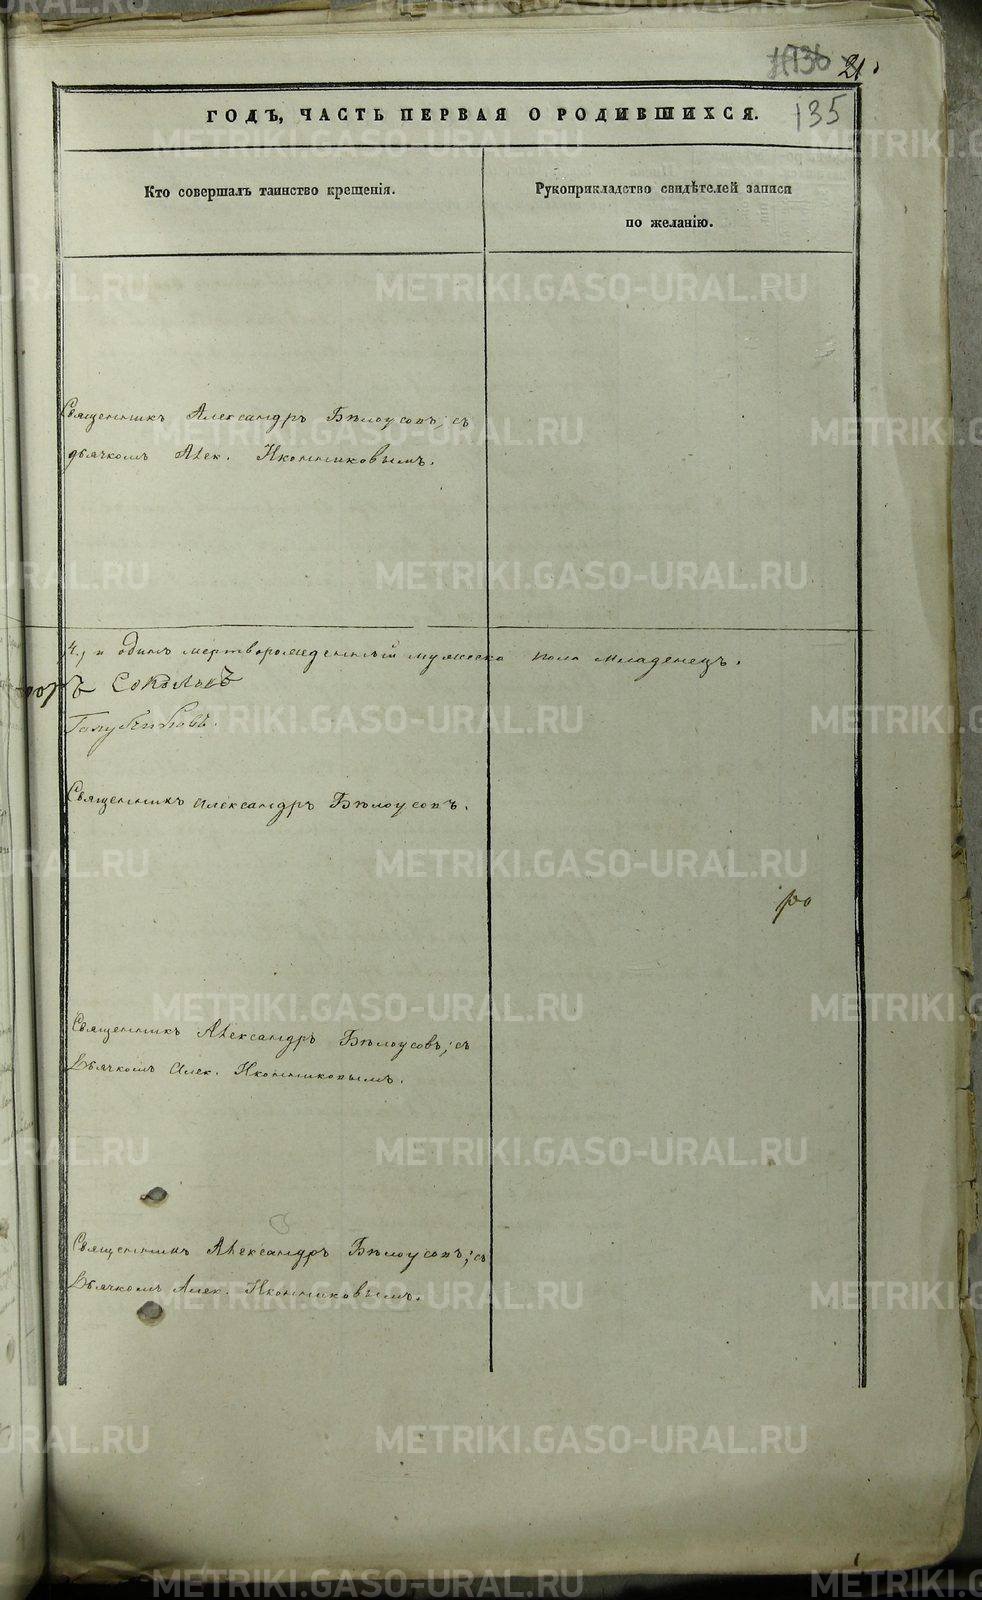 21
135
ГОДЪ, ЧАСТЬ ПЕРВАЯ О РОДИВШИХСЯ.
Кто совершалъ таинство крещенія.
Рукоприкладство свидѣтелей записи
по желанію.
Священникъ Александръ Бѣлоусовъ; съ
дьячкомъ Алек. Иконниковымъ.
4, и одинъ мертворожденный мужеска пола младенецъ.
Соколовъ
Голубчиковъ.
Священникъ Александръ Бѣлоусовъ.
Священникъ Александръ Бѣлоусовъ; съ
Дьячкомъ Алек. Иконниковымъ.
Священникъ Александръ Бѣлоусовъ; съ
Дьячкомъ Алек. Иконниковымъ.
METRIKI.GASO-URAL.RU